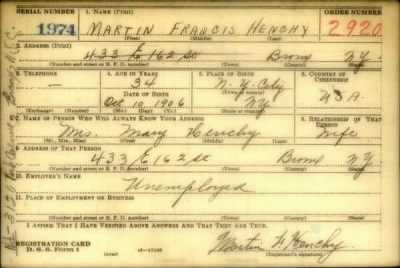 SERIAL NUMBER 1. NAME (Print) ORDER NUMBER
1974 MARTIN FRANCIS HENCHY 2920
(First) (Middle) (Last)
2. ADDRESS (Print)
433 E 162 St Bronx N.Y.
(Number and street or R. F. D. number) (Town) (County) (State)
3. TELEPHONE 4. AGE IN YEARS 5. PLACE OF BIRTH 6. COUNTRY OF CITIZENSHIP
— 34 N. Y. City
DATE OF BIRTH (Town or county)
Oct 10 1906 NY USA
(Exchange) (Number) (Mo.) (Day) (Yr.) (State or country)
7. NAME OF PERSON WHO WILL ALWAYS KNOW YOUR ADDRESS 8. RELATIONSHIP OF THAT PERSON
Mrs. Mary Henchy Wife
(Mr., Mrs., Miss) (First) (Middle) (Last)
9. ADDRESS OF THAT PERSON
433 E 162 St Bronx N.Y.
(Number and street or R. F. D. number) (Town) (County) (State)
10. EMPLOYER'S NAME
Unemployed
11. PLACE OF EMPLOYMENT OR BUSINESS
(Number and street or R. F. D. number) (Town) (County) (State)
I AFFIRM THAT I HAVE VERIFIED ABOVE ANSWERS AND THAT THEY ARE TRUE.
REGISTRATION CARD
D. S. S. Form 1 (over) 16—17105 Martin F. Henchy
(Registrant's signature)